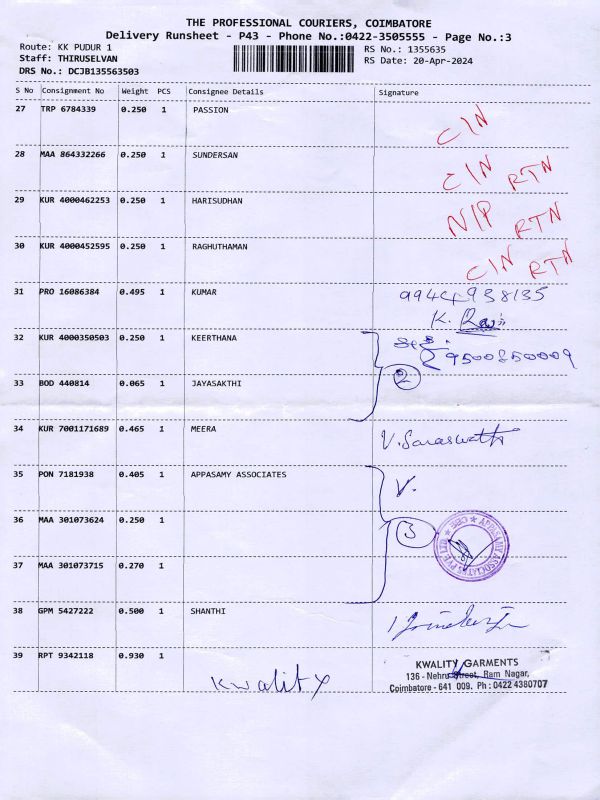 THE PROFESSIONAL COURIERS, COIMBATORE
Delivery Runsheet - P43 - Phone No.:0422-3505555 - Page No.:3
Route: KK PUDUR 1
Staff: THIRUSELVAN
DRS No.: DCJB135563503
RS No.: 1355635
RS Date: 20-Apr-2024
S No Consignment No Weight PCS Consignee Details Signature
27 TRP 6784339 0.250 1 PASSION CIN
28 MAA 864332266 0.250 1 SUNDERSAN CIN RTN
29 KUR 4000462253 0.250 1 HARISUDHAN NIP RTN
30 KUR 4000452595 0.250 1 RAGHUTHAMAN CIN RTN
31 PRO 16086384 0.495 1 KUMAR 9944938135
K.
32 KUR 4000350503 0.250 1 KEERTHANA 9500850009
33 BOD 440814 0.065 1 JAYASAKTHI 2
34 KUR 7001171689 0.465 1 MEERA V. Saraswathi
35 PON 7181938 0.405 1 APPASAMY ASSOCIATES V.
36 MAA 301073624 0.250 1 3 APPASAMY ASSOCIATES PVT LTD
37 MAA 301073715 0.270 1
38 GPM 5427222 0.500 1 SHANTHI
39 RPT 9342118 0.930 1 Kwality
KWALITY GARMENTS
136 - Nehru Street, Ram Nagar,
Coimbatore - 641 009. Ph : 0422 4380707